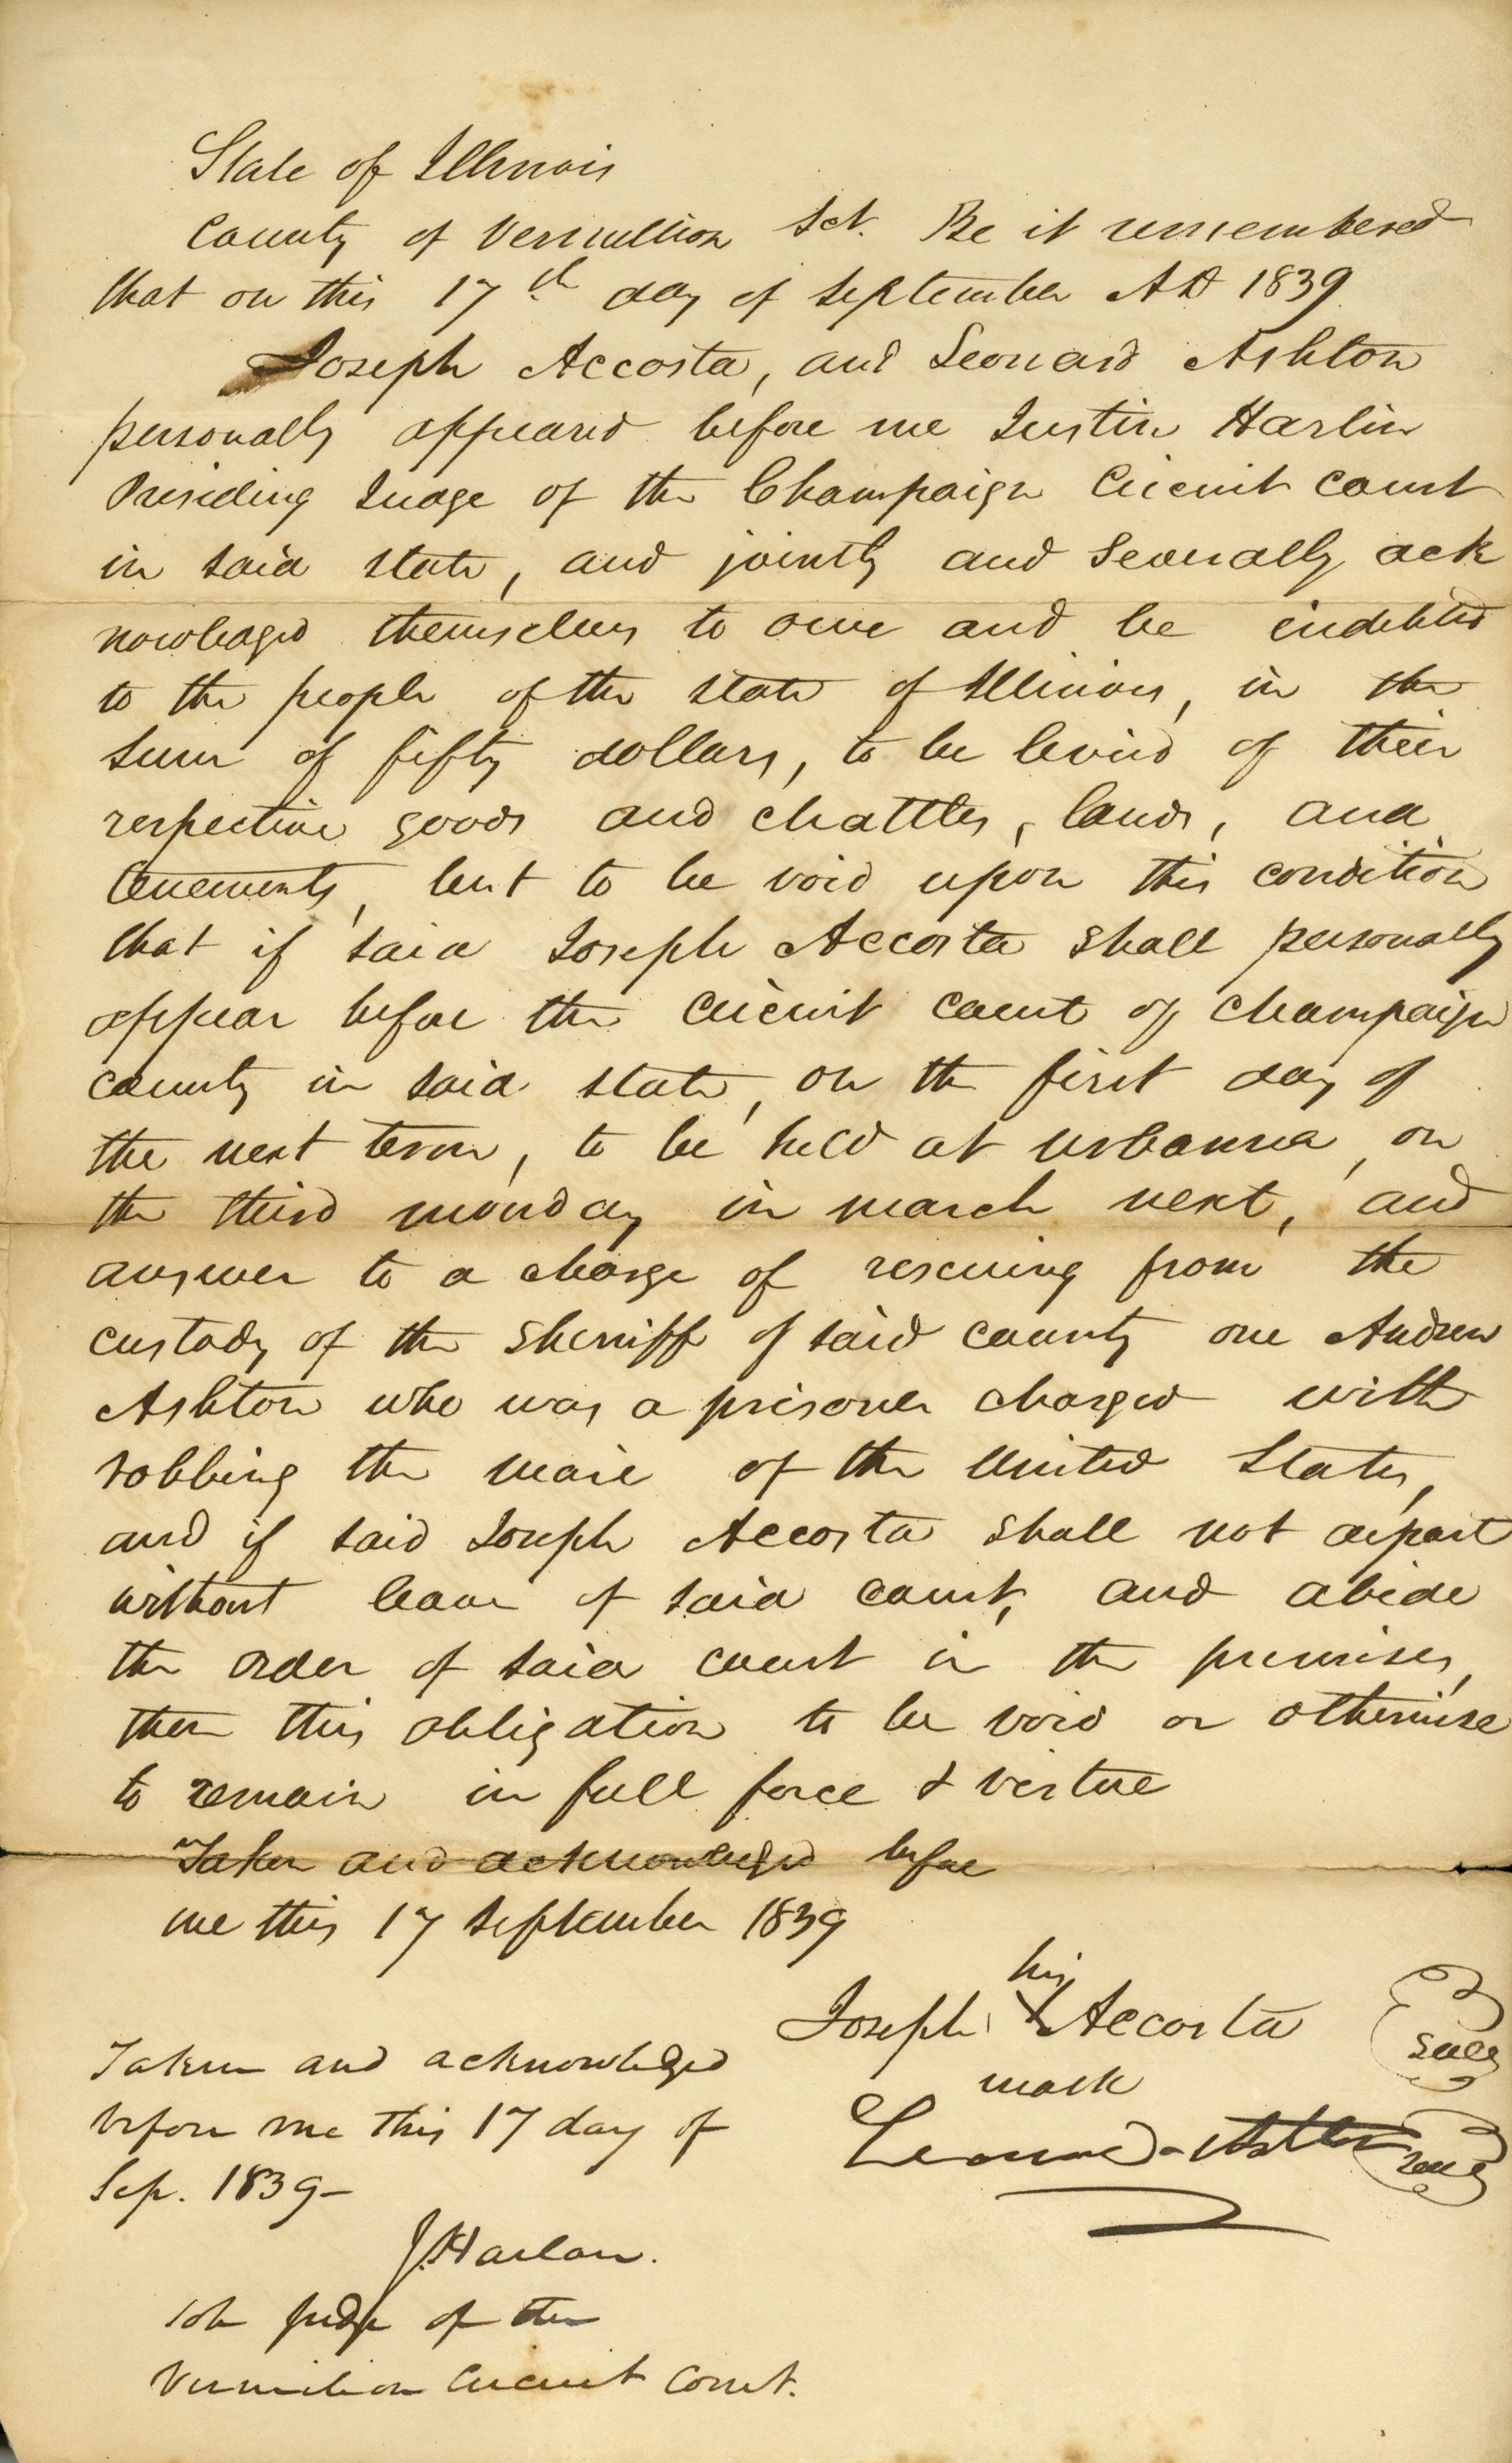 State of Illinois
County of Vermillion Sct. Be it remembered
that on this 17th day of September AD 1839
Joseph Accosta, and Leonard Ashton
personally appeared before me Justin Harlin
Presiding Judge of the Champaign Circuit Court
in said state, and jointly and Severally ack
nowledged themselves to owe and be indebted
to the people of the state of Illinois, in the
Sum of fifty dollars, to be levied of their
respective goods and chattles, lands, and
tenements, but to be void upon this condition
that if said Joseph Accosta shall personally
appear before the Circuit Court of Champaign
County in said state, on the first day of
the next term, to be held at Urbanna, on
the third monday in march next, and
answer to a charge of rescuing from the
custody of the Sherriff of said County one Andrew
Ashton who was a prisoner charged with
robbing the mail of the United States,
and if said Joseph Accosta shall not depart
without leave of said court, and abide
the order of said court in the premises,
then this obligation to be void or otherwise
to remain in full force & virtue
Taken and acknowledged before
me this 17 September 1839
his
Joseph X Accosta Seal
mark
Leonard Ashton Seal
Taken and acknowledged
before me this 17 day of
Sep. 1839—
J. Harlan.
Judge of the
Vermilion Circuit Court.